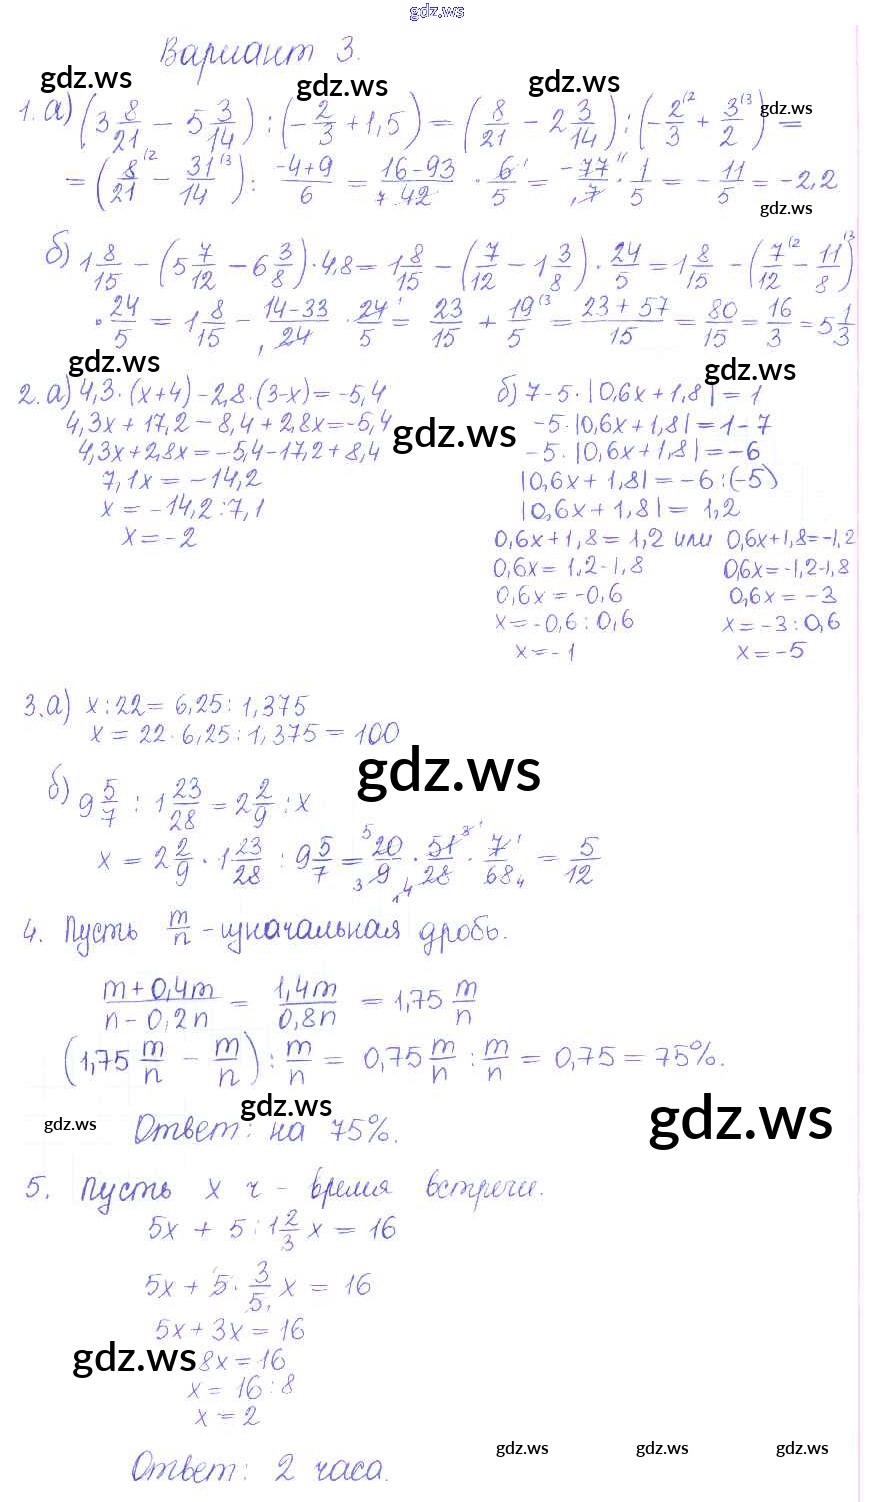 gdz.ws
Вариант 3.
gdz.ws gdz.ws gdz.ws gdz.ws
1. а) (3 8/21 − 5 3/14) : (−2/3 + 1,5) = (8/21 − 2 3/14) : (−2/3 + 3/2) =
= (8/21 − 31/14) : (−4+9)/6 = (16−93)/42 · 6/5 = −77/7 · 1/5 = −11/5 = −2,2
gdz.ws
б) 1 8/15 − (5 7/12 − 6 3/8) · 4,8 = 1 8/15 − (7/12 − 1 3/8) · 24/5 = 1 8/15 − (7/12 − 11/8)
· 24/5 = 1 8/15 − (14−33)/24 · 24/5 = 23/15 + 19/5 = (23+57)/15 = 80/15 = 16/3 = 5 1/3
gdz.ws gdz.ws
2. а) 4,3·(x+4) −2,8·(3−x) = −5,4
4,3x + 17,2 − 8,4 + 2,8x = −5,4
4,3x + 2,8x = −5,4 −17,2 + 8,4
7,1x = −14,2
x = −14,2 : 7,1
x = −2
gdz.ws
б) 7−5·|0,6x + 1,8| = 1
−5·|0,6x + 1,8| = 1−7
−5·|0,6x + 1,8| = −6
|0,6x + 1,8| = −6 : (−5)
|0,6x + 1,8| = 1,2
0,6x + 1,8 = 1,2 или 0,6x+1,8=−1,2
0,6x = 1,2−1,8 0,6x=−1,2−1,8
0,6x = −0,6 0,6x = −3
x = −0,6 : 0,6 x = −3 : 0,6
x = −1 x = −5
3. а) x : 22 = 6,25 : 1,375
x = 22 · 6,25 : 1,375 = 100
gdz.ws
б) 9 5/7 : 1 23/28 = 2 2/9 : x
x = 2 2/9 · 1 23/28 : 9 5/7 = 20/9 · 51/28 · 7/68 = 5/12
4. Пусть m/n - изначальная дробь.
(m+0,4m)/(n−0,2n) = 1,4m/0,8n = 1,75 m/n
(1,75 m/n − m/n) : m/n = 0,75 m/n : m/n = 0,75 = 75%.
gdz.ws gdz.ws gdz.ws
Ответ: на 75%.
5. Пусть x ч - время встречи.
5x + 5 : 1 2/3 x = 16
5x + 5 · 3/5 x = 16
5x + 3x = 16
gdz.ws
8x = 16
x = 16 : 8
x = 2
gdz.ws gdz.ws gdz.ws
Ответ: 2 часа.